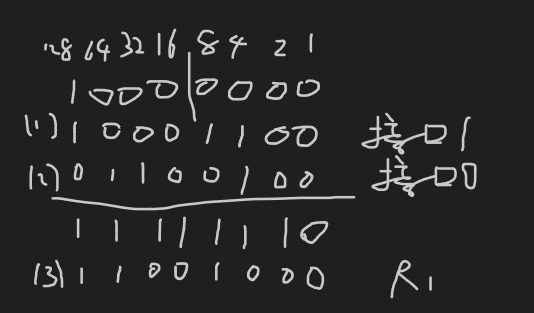 128 64 32 16 8 4 2 1
1 0 0 0 0 0 0 0
(1) 1 0 0 0 1 1 0 0 接口1
(2) 0 1 1 0 0 1 0 0 接口0
1 1 1 1 1 1 1 0
(3) 1 1 0 0 1 0 0 0 R1